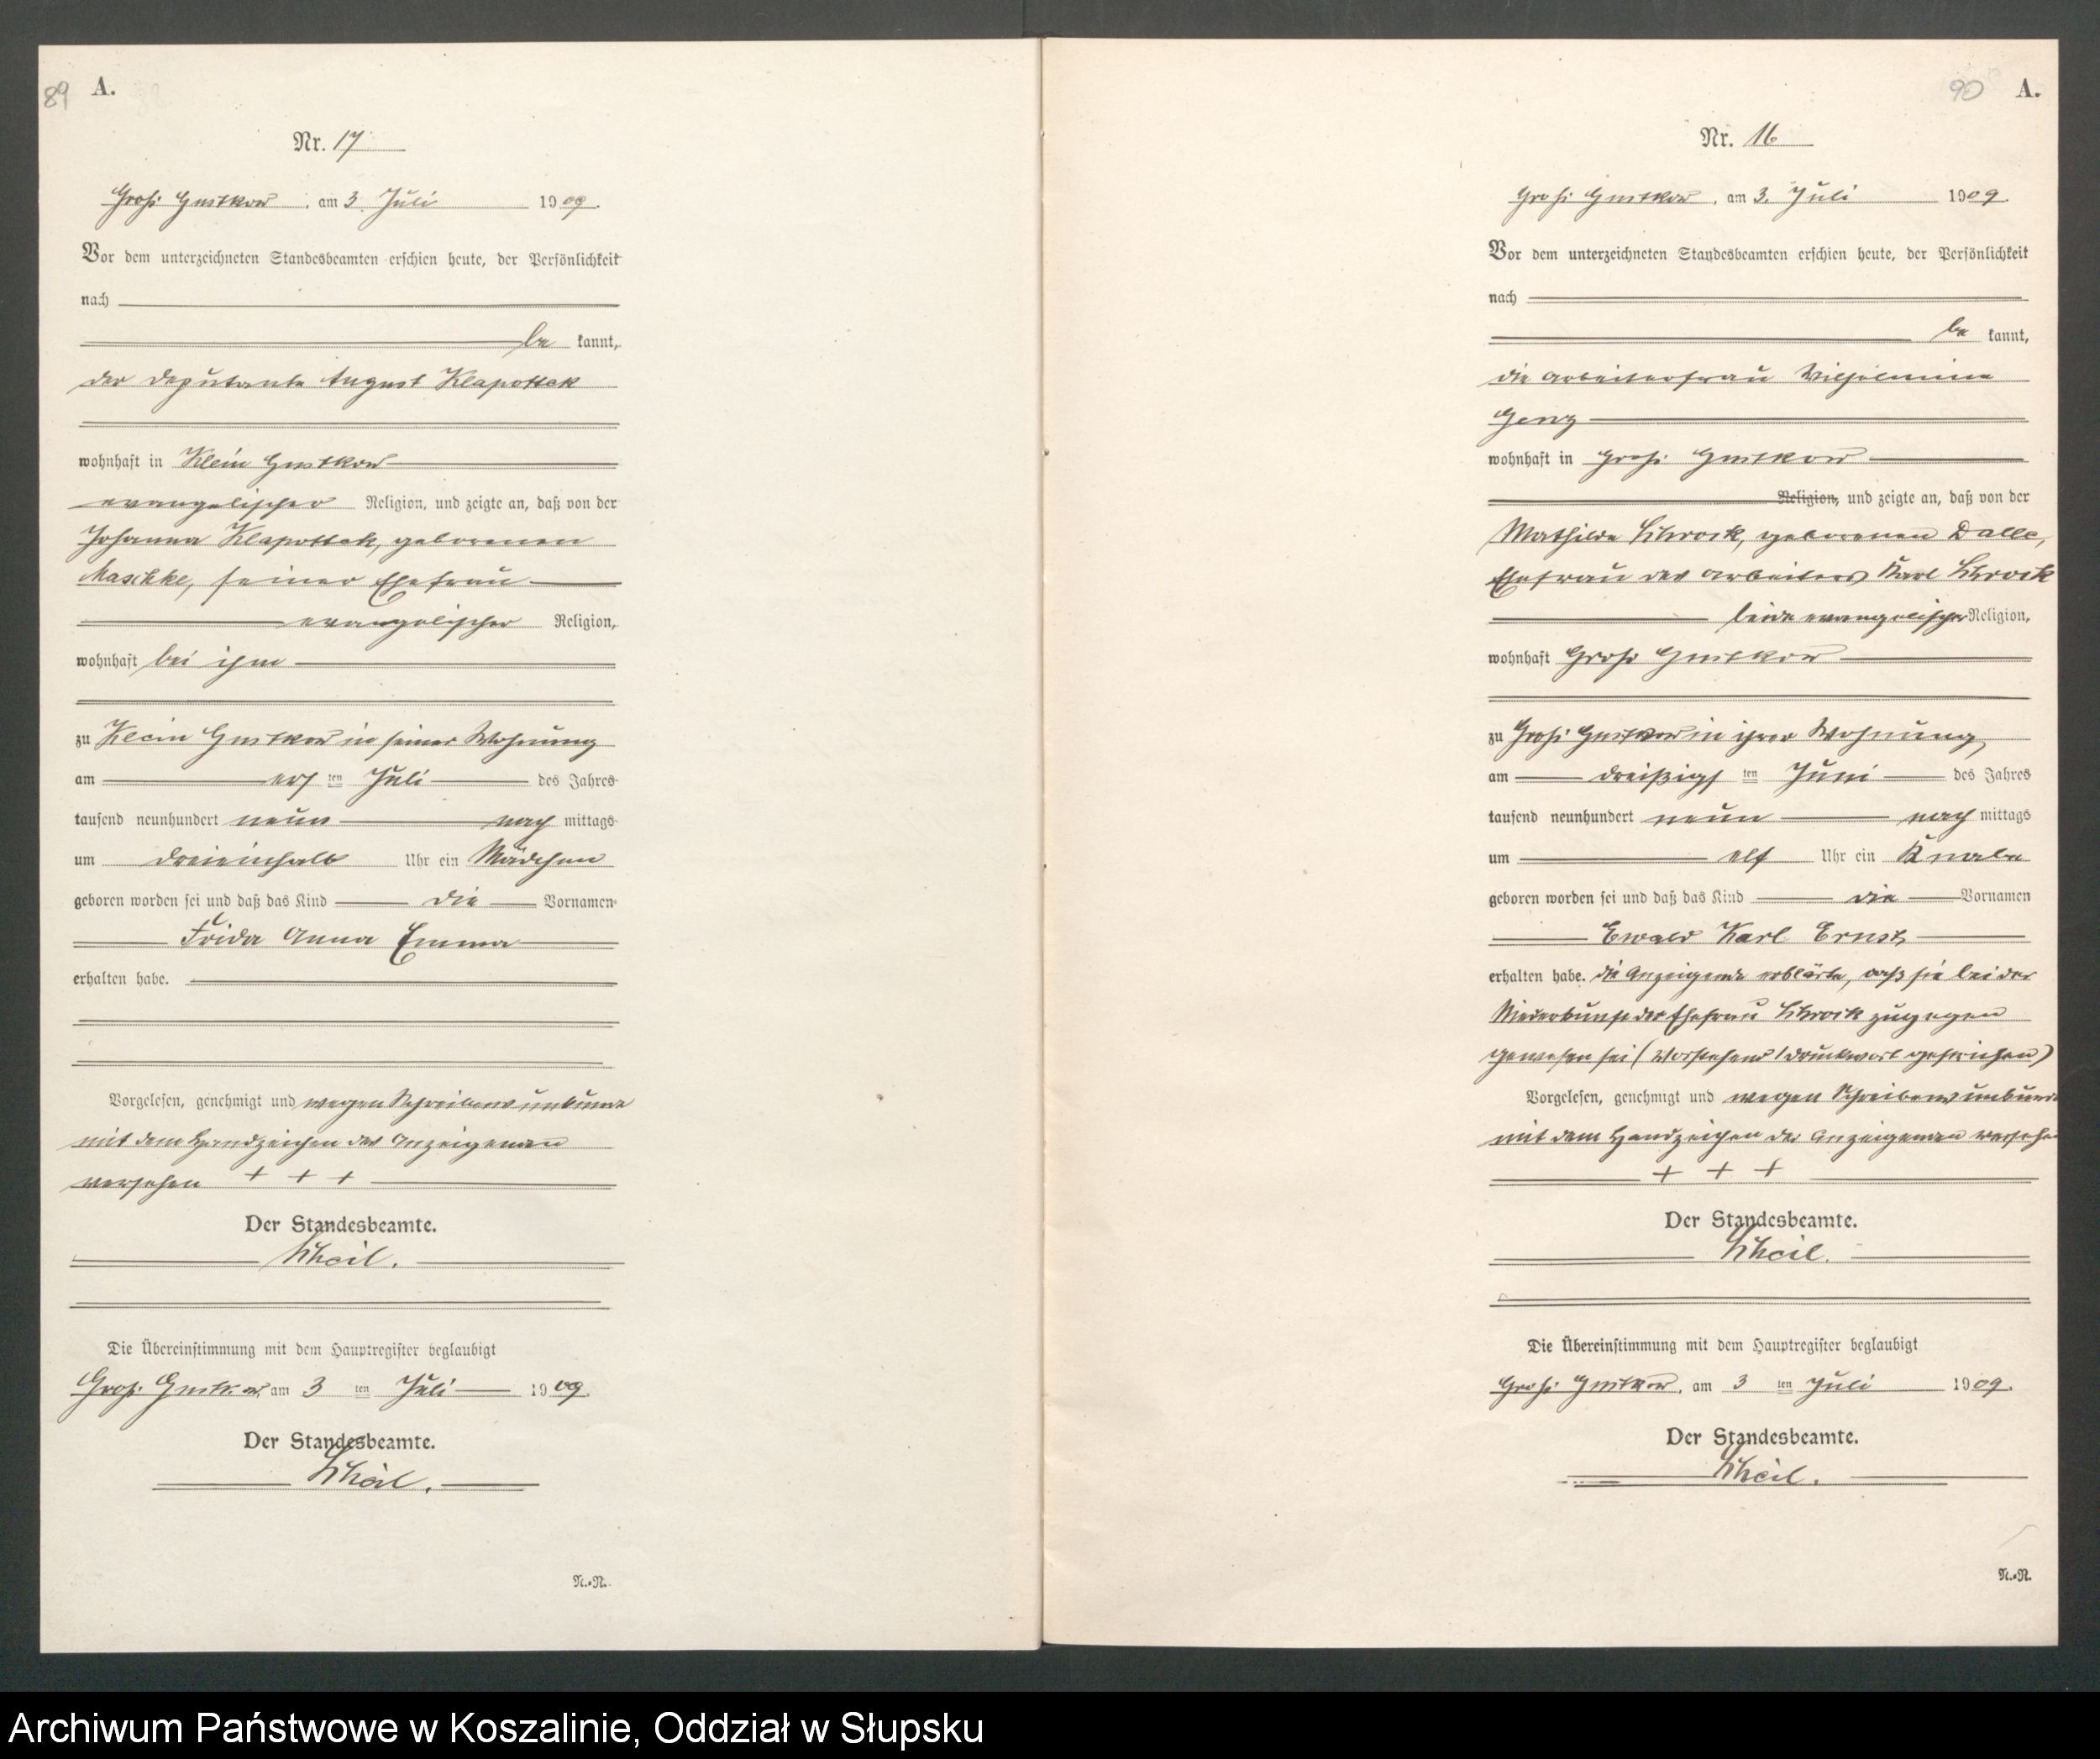 89 A.
Nr. 17
Groß Gustkow, am 3. Juli 1909.
Vor dem unterzeichneten Standesbeamten erschien heute, der Persönlichkeit
nach
be kannt,
der Deputante August Klapottek
wohnhaft in Klein Gustkow
evangelischer Religion, und zeigte an, daß von der
Johanna Klapottek, geborenen
Maschke, seiner Ehefrau
evangelischer Religion,
wohnhaft bei ihm
zu Klein Gustkow in seiner Wohnung
am ersten Juli des Jahres
tausend neunhundert neun nach mittags
um dreieinhalb Uhr ein Mädchen
geboren worden sei und daß das Kind die Vornamen
Frida Anna Emma
erhalten habe.
Vorgelesen, genehmigt und wegen Schreibensunkunde
mit dem Handzeichen des Anzeigenden
versehen + + +
Der Standesbeamte.
Der Standesbeamte.
Die Übereinstimmung mit dem Hauptregister beglaubigt
Groß Gustkow, am 3 ten Juli 1909.
Der Standesbeamte.
N.-R.
90 A.
Nr. 16
Groß Gustkow, am 3. Juli 1909.
Vor dem unterzeichneten Standesbeamten erschien heute, der Persönlichkeit
nach
be kannt,
die Arbeiterfrau Wilhelmine
Genz
wohnhaft in Groß Gustkow
Religion, und zeigte an, daß von der
Mathilde Schrock, geborenen Dalle,
Ehefrau des Arbeiters Karl Schrock
beide evangelischer Religion,
wohnhaft Groß Gustkow
zu Groß Gustkow in ihrer Wohnung
am dreißigsten Juni des Jahres
tausend neunhundert neun nach mittags
um elf Uhr ein Knabe
geboren worden sei und daß das Kind die Vornamen
Ewald Karl Ernst
erhalten habe. Die Anzeigende erklärte, daß sie bei der
Niederkunft der Ehefrau Schrock zugegen
gewesen sei (Vorstehend 1 Druckwort gestrichen)
Vorgelesen, genehmigt und wegen Schreibensunkunde
mit dem Handzeichen der Anzeigenden versehen
+ + +
Der Standesbeamte.
Die Übereinstimmung mit dem Hauptregister beglaubigt
Groß Gustkow, am 3 ten Juli 1909.
Der Standesbeamte.
N.-R.
Archiwum Państwowe w Koszalinie, Oddział w Słupsku